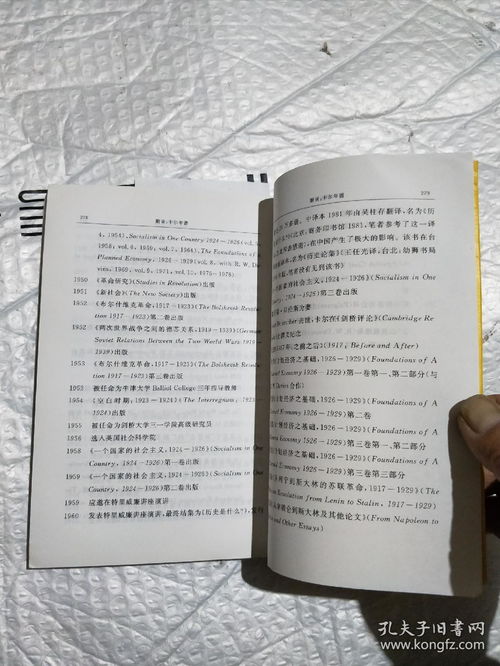 278 附录:卡尔年谱
4, 1954), Socialism in One Country 1924-1926 (vol. 5,
1958; vol. 6, 1959; vol. 7, 1964), The Foundations of a
Planned Economy, 1926-1929 (vol. 8, with R. W. Da-
vies, 1969; vol. 9, 1971; vol. 10, 1976-1978)
1950 《革命研究》(Studies in Revolution)出版
1951 《新社会》(The New Society)出版
1952 《布尔什维克革命,1917-1923》(The Bolshevik Revolution
1917-1923)第二卷出版
1952 《两次世界战争之间的德苏关系,1919-1939》(German-
Soviet Relations Between the Two World Wars 1919-
1939)出版
1953 《布尔什维克革命,1917-1923》(The Bolshevik Revolution
1917-1923)第三卷出版
1953 被任命为牛津大学 Balliol College 三年指导教师
1954 《空白时期:1923-1924》(The Interregnum, 1923-
1924)出版
1955 被任命为剑桥大学三一学院高级研究员
1956 选入英国社会科学院
1958 《一个国家的社会主义,1924-1926》(Socialism in One
Country, 1924-1926)第一卷出版
1959 《一个国家的社会主义,1924-1926》(Socialism in One
Country, 1924-1926)第二卷出版
1959 应邀在特里威廉讲座演讲
1960 发表特里威廉讲座演讲,最终结集为《历史是什么?》,发行
附录:卡尔年谱 279
万多册。中译本1981年由吴柱存翻译,名为《历
》(北京:商务印书馆1981),笔者参考了这一译
表感谢,在中国产生了极大的影响。该书在台
名为《历史论集》(王任光译;台北:幼狮书局
,笔者没有见到该书)
国家的社会主义,1924-1926》(Socialism in One
(1924-1926)第三卷出版
·巴伯斯为妻
Deutscher 去世,卡尔在《剑桥评论》(Cambridge Re-
发表悼文纪念
17年之前之后》(1917, Before and After)
划经济之基础,1926-1929》(Foundations of A
Economy 1926-1929)第一卷第一、第二部分(与
Davies 合作)
划经济之基础,1926-1929》(Foundations of A
Economy 1926-1929)第二卷
经济之基础,1926-1929》(Foundations of A
Economy 1926-1929)第三卷第一、第二部分
经济之基础,1926-1929》(Foundations of A
Economy 1926-1929)第三卷第三部分
列宁到斯大林的苏联革命,1917-1929》(The
Revolution from Lenin to Stalin, 1917-1929)
拿破仑到斯大林及其他论文》(From Napoleon to
and Other Essays)
孔夫子旧书网
www.kongfz.com